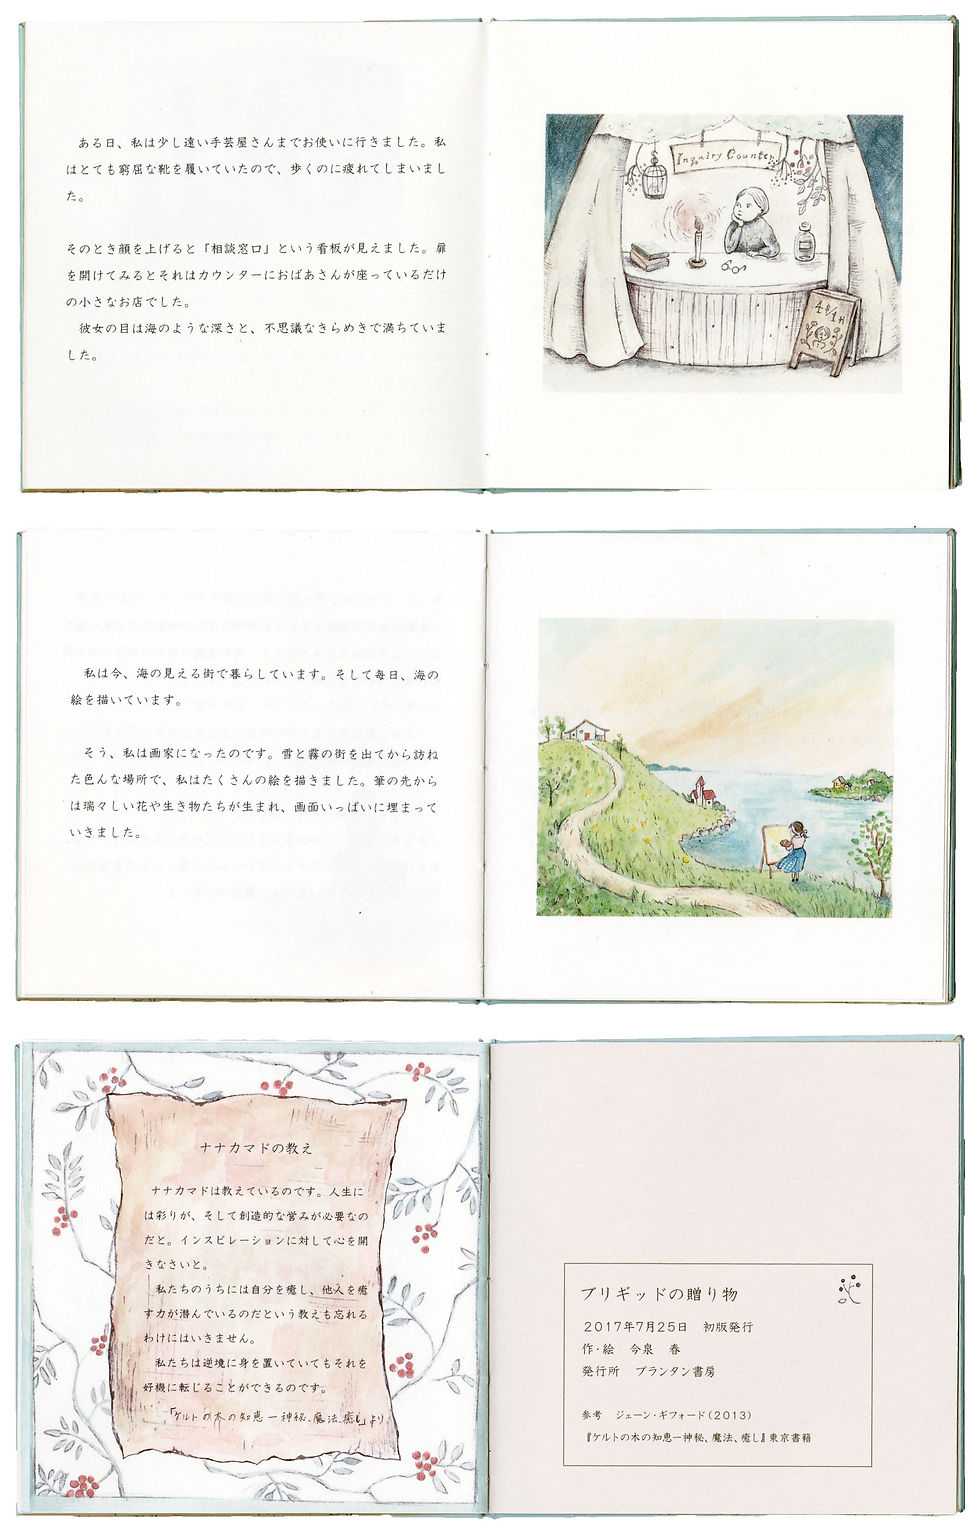 ある日、私は少し遠い手芸屋さんまでお使いに行きました。私
はとても窮屈な靴を履いていたので、歩くのに疲れてしまいまし
た。
そのとき顔を上げると「相談窓口」という看板が見えました。扉
を開けてみるとそれはカウンターにおばあさんが座っているだけ
の小さなお店でした。
彼女の目は海のような深さと、不思議なきらめきで満ちていま
した。
Inquiry Counter
私は今、海の見える街で暮らしています。そして毎日、海の
絵を描いています。
そう、私は画家になったのです。雪と霧の街を出てから訪ね
た色んな場所で、私はたくさんの絵を描きました。筆の先から
は瑞々しい花や生き物たちが生まれ、画面いっぱいに埋まって
いきました。
ナナカマドの教え
ナナカマドは教えているのです。人生に
は彩りが、そして創造的な営みが必要なの
だと。インスピレーションに対して心を開
きなさいと。
私たちのうちには自分を癒し、他人を癒
す力が潜んでいるのだという教えも忘れる
わけにはいきません。
私たちは逆境に身を置いていてもそれを
好機に転じることができるのです。
「ケルトの木の知恵ー神秘、魔法、癒し」より
ブリギッドの贈り物
2017年7月25日　初版発行
作・絵　今泉　春
発行所　プランタン書房
参考　ジェーン・ギフォード(2013)
『ケルトの木の知恵ー神秘、魔法、癒し』東京書籍